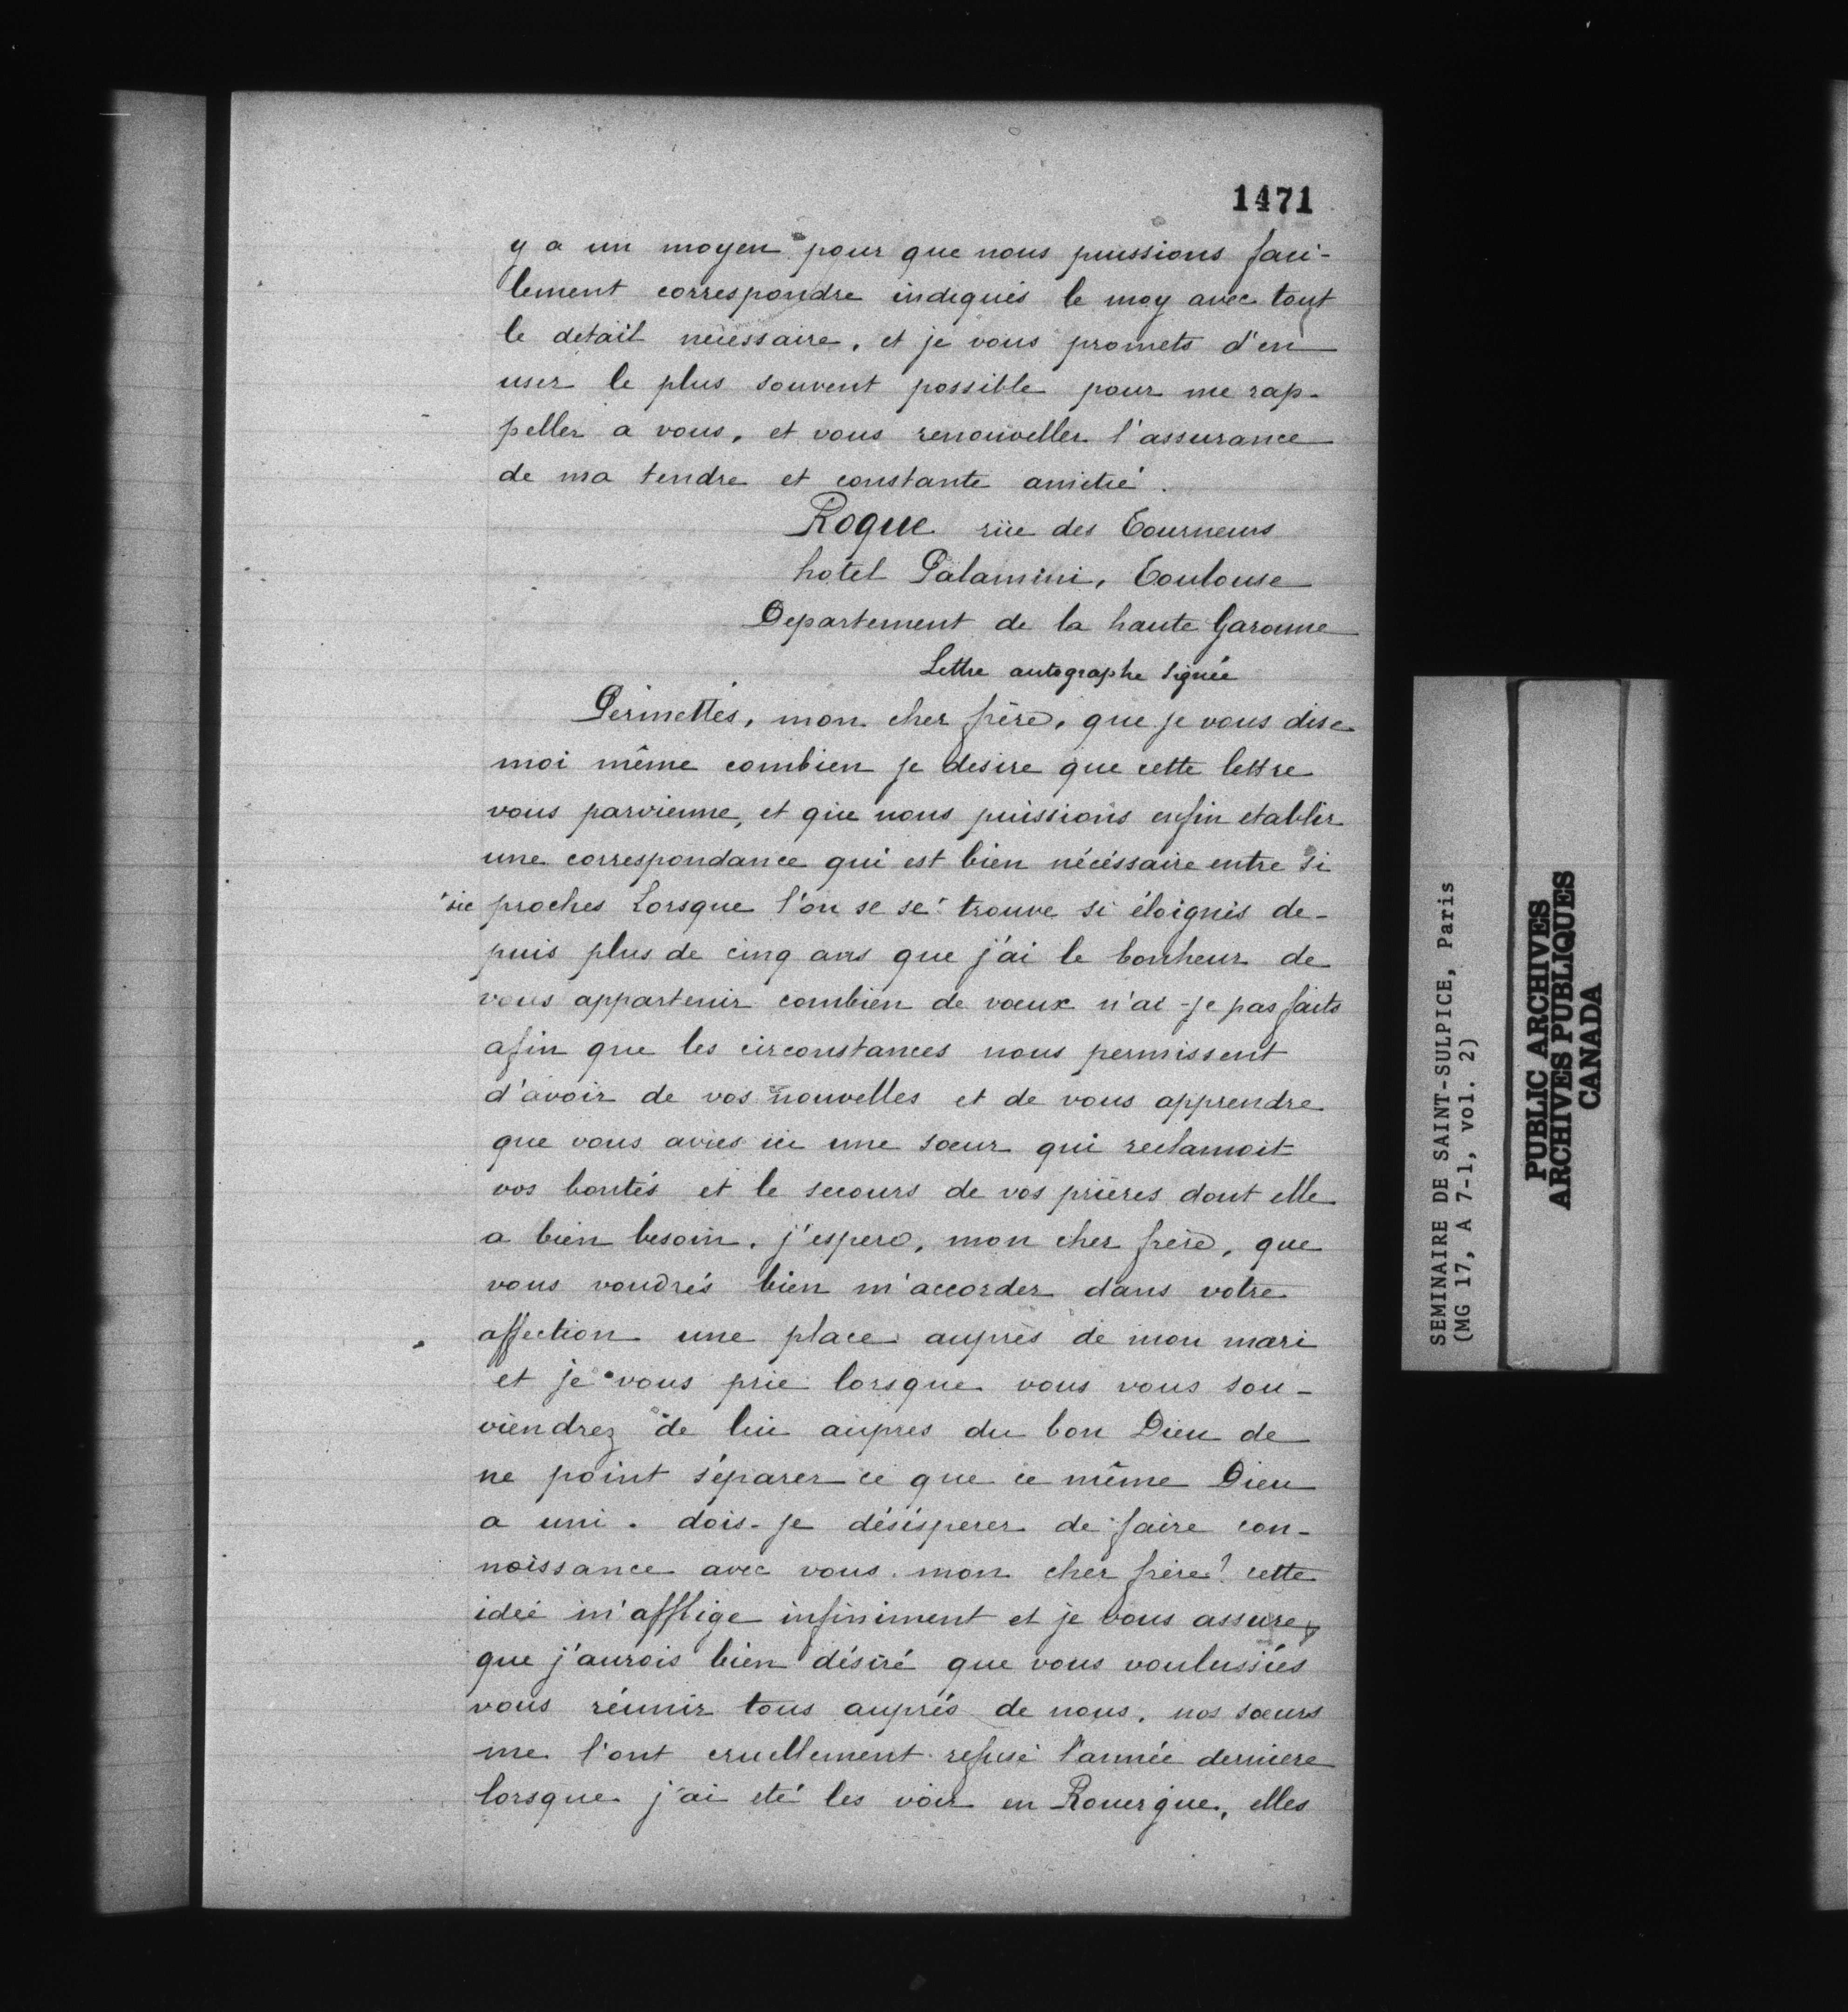 1471
y a un moyen pour que nous puissions faci-
lement correspondre indiqués le moy avec tout
le detail necessaire, et je vous promets d'en
user le plus souvent possible pour me rap-
peller a vous, et vous renouveller l'assurance
de ma tendre et constante amitié.
Roque rüe des Tourneurs
hotel Palamini, Toulouse
Departement de la haute Garonne
Lettre autographe signée
Permettés, mon cher frère, que je vous dise
moi même combien je desire que cette lettre
vous parvienne, et que nous puissions enfin etablir
une correspondance qui est bien nécéssaire entre si
sic proches Lorsque l'on se se trouve si éloignés de-
puis plus de cinq ans que j'ai le bonheur de
vous appartenir combien de vœux n'ai-je pas faits
afin que les circonstances nous permissent
d'avoir de vos nouvelles et de vous apprendre
que vous aviés ici une sœur qui reclamoit
vos bontés et le secours de vos prières dont elle
a bien besoin. j'espere, mon cher frère, que
vous voudrés bien m'accorder dans votre
affection une place auprès de mon mari
et je vous prie lorsque vous vous sou-
viendrez de lui aupres du bon Dieu de
ne point séparer ce que ce même Dieu
a uni. dois-je désésperer de faire con-
noissance avec vous mon cher frère? cette
idée m'afflige infiniment et je vous assure
que j'aurois bien désiré que vous voulussiés
vous réunir tous auprés de nous. nos sœurs
me l'ont cruellement refusé l'année derniere
lorsque j'ai eté les voir en Rouergue, elles
SEMINAIRE DE SAINT-SULPICE, Paris
(MG 17, A 7-1, vol. 2)
PUBLIC ARCHIVES
ARCHIVES PUBLIQUES
CANADA